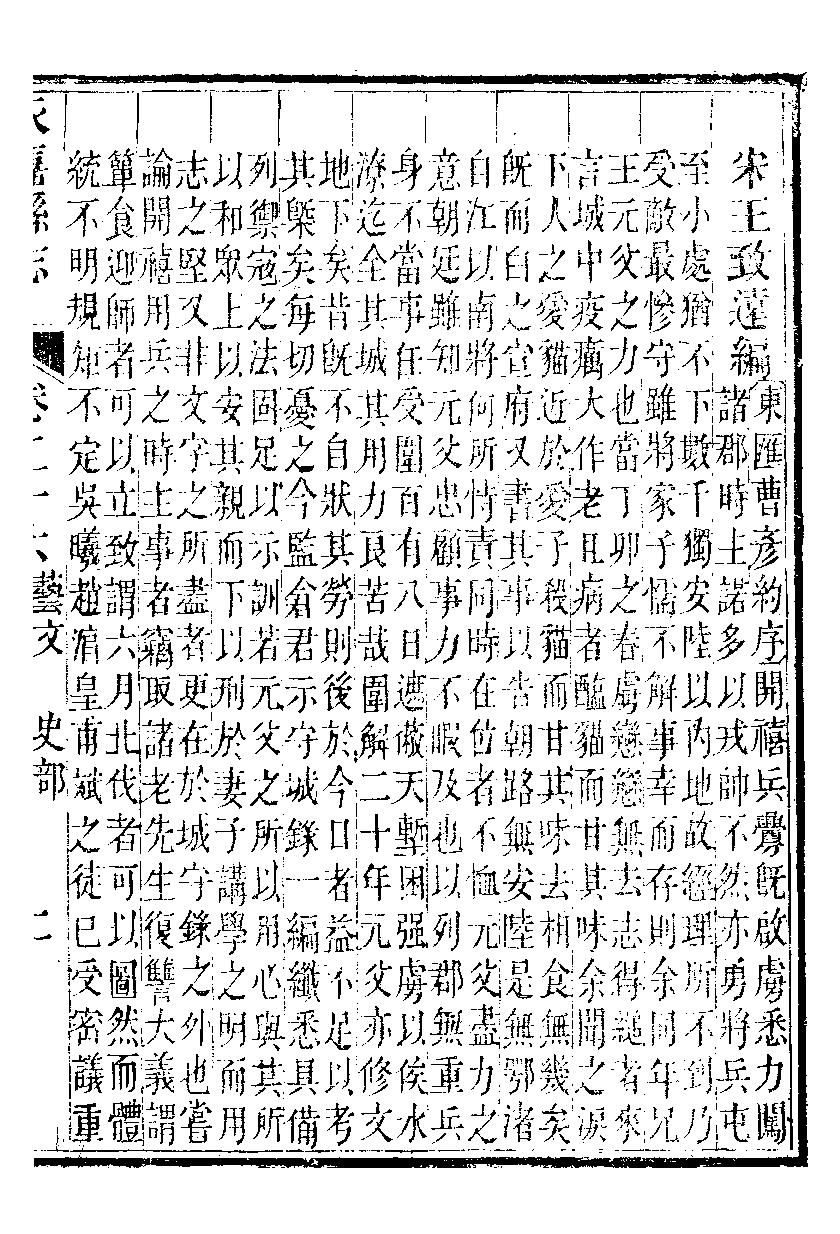 宋王致遠編
東匯曹彥約序開禧兵釁既啟虜悉力闖
諸郡時主諾多以戎帥不然亦勇將兵屯
至小處猶不下數千獨安陸以內地故經理所不到乃
受敵最慘守雖將家子懦不解事幸而存則余同年兄
王元父之力也當丁卯之春虜戀戀無去志得縋者來
言城中疫癘大作老且病者醢貓而甘其味余聞之淚
下人之愛貓近於愛子殺貓而甘其味去相食無幾矣
旣而白之宣府又書其事以告朝路無安陸是無鄂渚
自江以南將何所恃責同時在位者不恤元父盡力之
意朝廷雖知元父忠顧事力不暇及也以列郡無重兵
身不當事任受圍百有八日遮蔽天塹困强虜以俟水
潦迄全其城其用力良苦哉圍解二十年元父亦修文
地下矣昔旣不自狀其勞則後於今日者益不足以考
其槩矣每切憂之今監倉君示守城錄一編纖悉具備
列禦寇之法固足以示訓若元父之所以用心與其所
以和眾上以安其親而下以刑於妻子講學之明而用
志之堅又非文字之所盡者更在於城守錄之外也嘗
論開禧用兵之時主事者竊取諸老先生復讐大義謂
簞食迎師者可以立致謂六月北伐者可以圖然而體
統不明規矩不定吳曦趙淳皇甫斌之徒已受密議重
永嘉縣志 卷二十六 藝文 史部 二